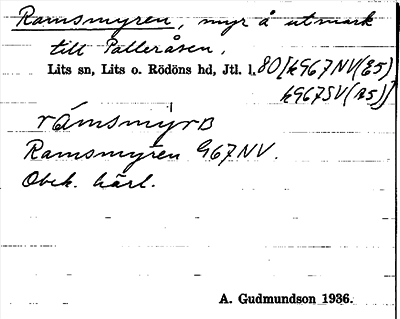 Ramsmyren, myr å utmark
till Palleråsen.
Lits sn, Lits o. Rödöns hd, Jtl. l. 80[k967NV(E5)
k967SV(A5)]
rámsmy̍rв
Ramsmyren 967NV.
Obek. härl.
A. Gudmundson 1936.